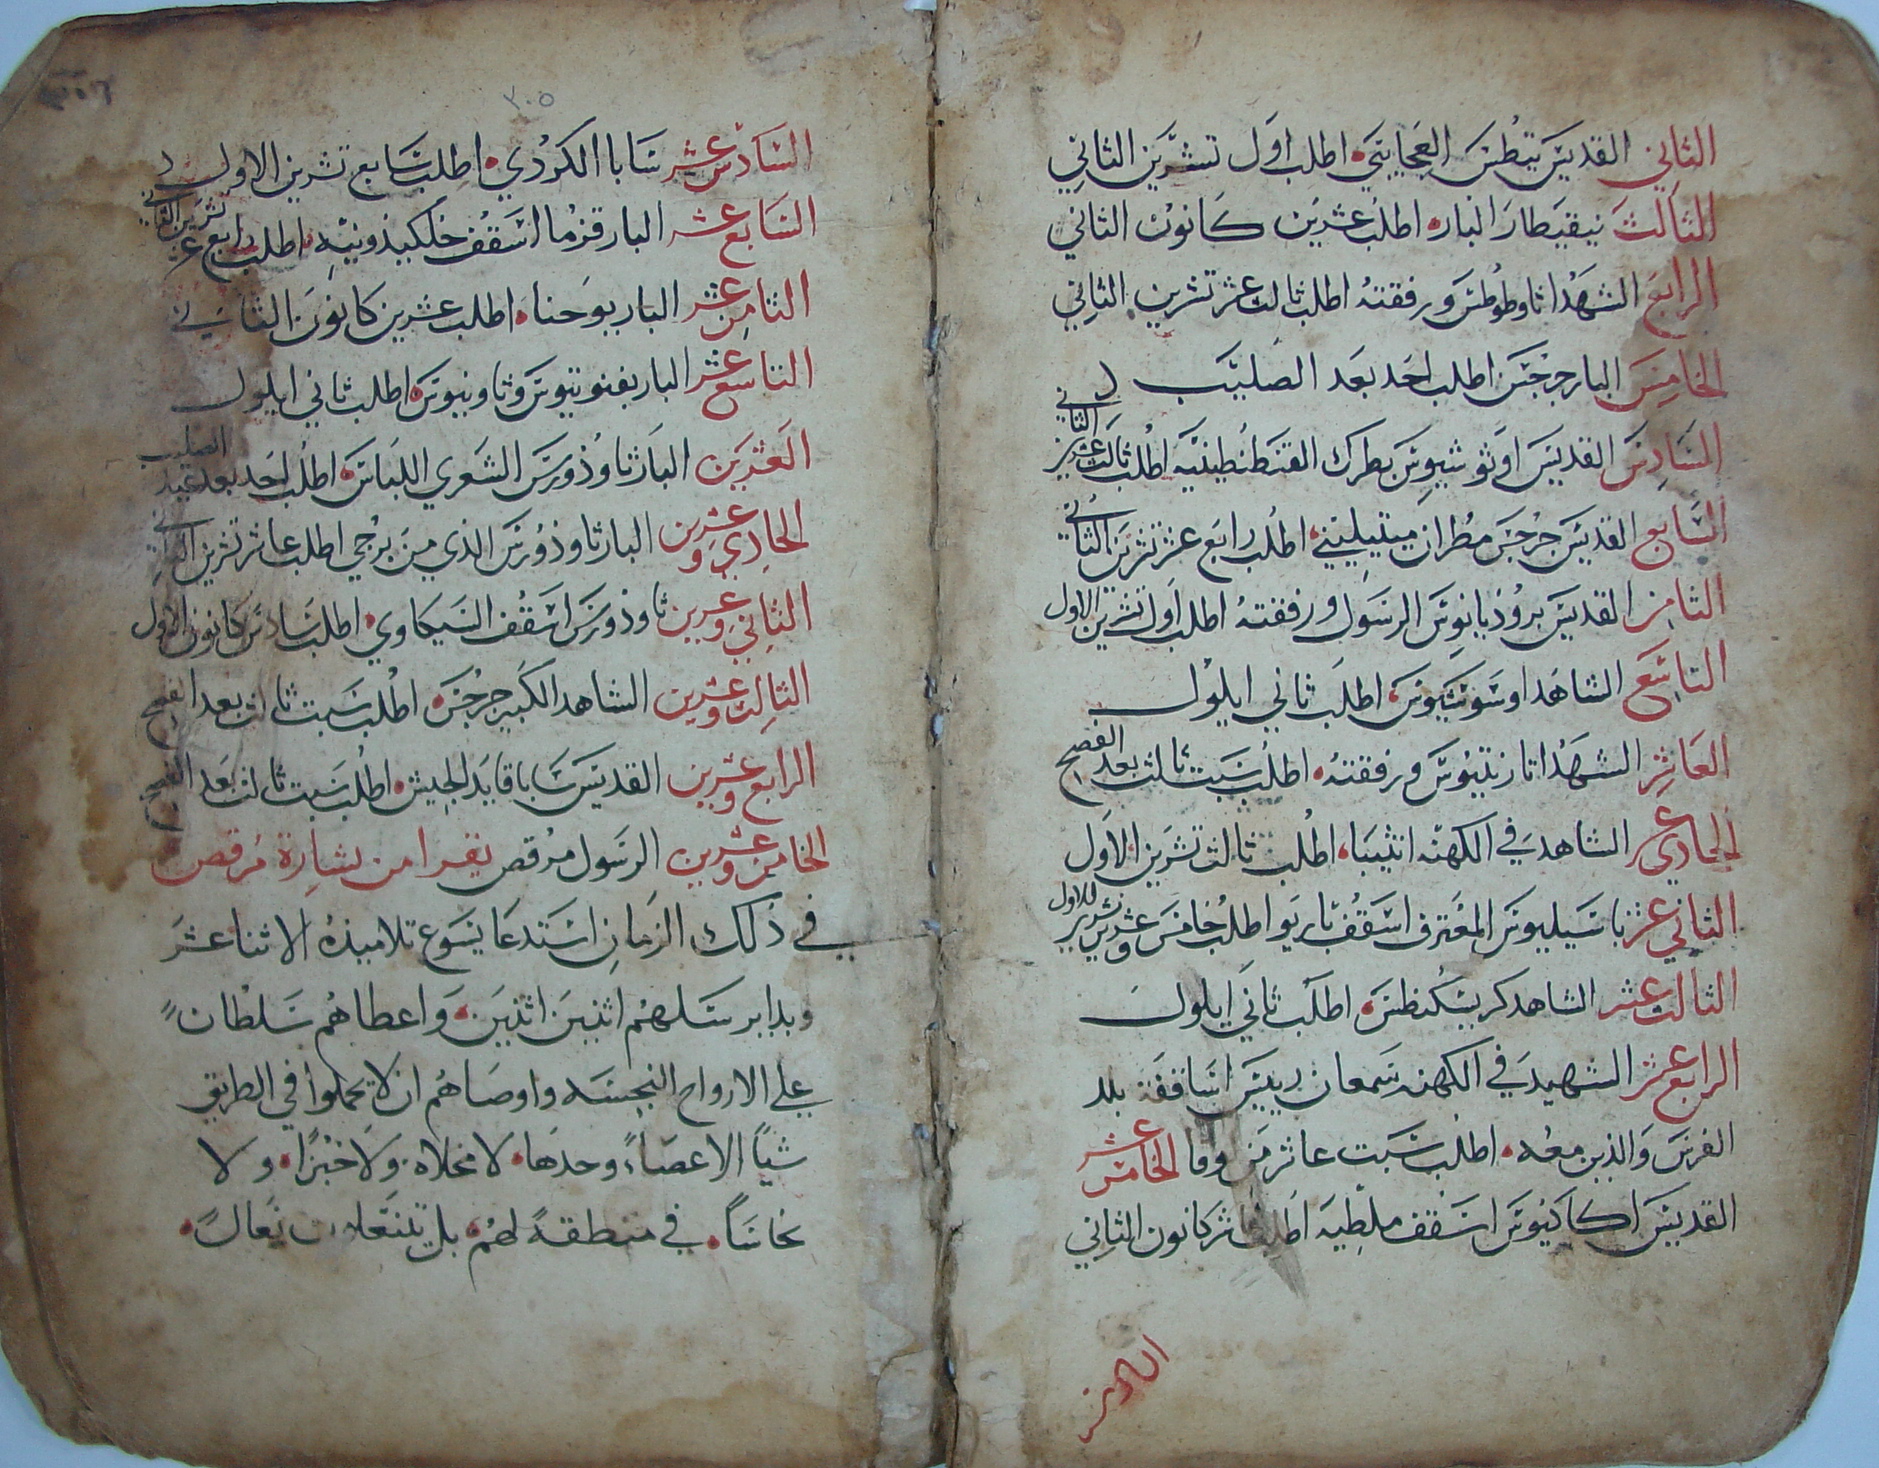 الثاني القديس تيطس العجايبي اطلب اول تشرين الثاني
الثالث نيقيطا البار اطلب عشرين كانون الثاني
الرابع الشهدا ثاوطوطس ورفقته اطلب ثالث عشر تشرين الثاني
الخامس البار جرجس اطلب احد بعد الصليب
السادس القديس اوثوشيوس بطرك القسطنطينيه اطلب ثالث عشرين الثاني
السابع القديس جرجس مطران ميتيليني اطلب رابع عشر تشرين الثاني
الثامن القديس بروذيانوس الرسول ورفقته اطلب اول تشرين الاول
التاسع الشاهد اوسوشيوس اطلب ثاني ايلول
العاشر الشهدا تارنتيوس ورفقته اطلب سبت ثالث بعد الفصح
الحادي عشر الشاهد في الكهنه انتيبا اطلب ثالث تشرين الاول
الثاني عشر باسيليوس المعترف اسقف ثاريو اطلب خامس وعشرين تشرين الاول
الثالث عشر الشاهد كريسكنطس اطلب ثاني ايلول
الرابع عشر الشهيد في الكهنه سمعان رييس اساقفة بلد
الفرس والذين معه اطلب سبت عاشر من لوقا الخامس عشر
القديس اكاكيوس اسقف ملطيه اطلب عاشر كانون الثاني
٢٠٥
السادس عشر سابا الكردي اطلب سابع تشرين الاول
السابع عشر البار قزما اسقف خلكيذونيه اطلب رابع عشر تشرين الثاني
الثامن عشر البار يوحنا اطلب عشرين كانون الثاني
التاسع عشر البار يفنوتيوس وثاونيوس اطلب ثاني ايلول
العشرين البار ثاوذورس الشعري اللباس اطلب احد بعد عيد الصليب
الحادي وعشرين البار ثاوذورس الذي من برجي اطلب عاشر تشرين الثاني
الثاني وعشرين ثاوذورس اسقف السيكاوي اطلب سادس كانون الاول
الثالث وعشرين الشاهد الكبير جرجس اطلب سبت ثالث بعد الفصح
الرابع وعشرين القديس سابا قايد الجيش اطلب سبت ثالث بعد الفصح
الخامس وعشرين الرسول مرقص يقرا من بشارة مرقص
في ذلك الزمان استدعا يسوع تلاميذه الاثنا عشر
وبدا يرسلهم اثنين اثنين واعطاهم سلطان
علي الارواح النجسه واوصاهم ان لا يحملوا في الطريق
شيا الا عصاء وحدها لا مخلاه ولا خبزا ولا
نحاسا في منطقة لهم بل يتنعلون نعال